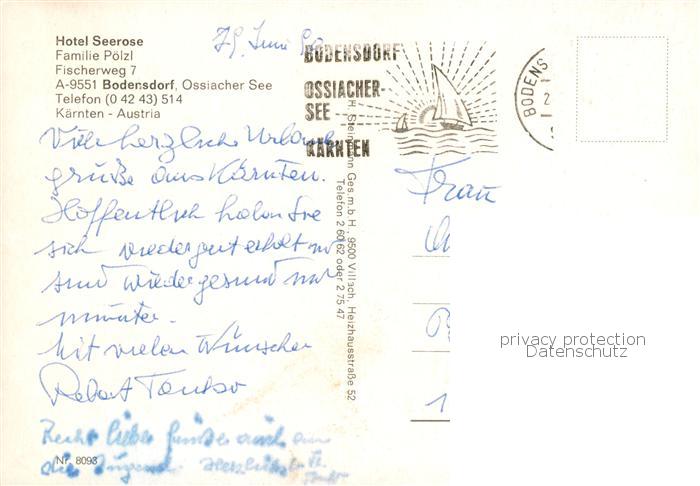 Hotel Seerose
Familie Pölzl
Fischerweg 7
A-9551 Bodensdorf, Ossiacher See
Telefon (0 42 43) 514
Kärnten - Austria
BODENSDORF
OSSIACHER-
SEE
KÄRNTEN
BODENS
Viele herzliche Urlaubs
grüße aus Kärnten.
Hoffentlich haben Sie
sich wieder gut erholt
sind wieder gesund
munter.
Mit vielen Wünschen
Robert
Recht liebe Grüße auch an
die Jugend.
Nr. 8093
Ges.m.b.H., 9500 Villach, Heizhausstraße 52
Telefon 2 60 62 oder 2 75 47
Frau
privacy protection
Datenschutz